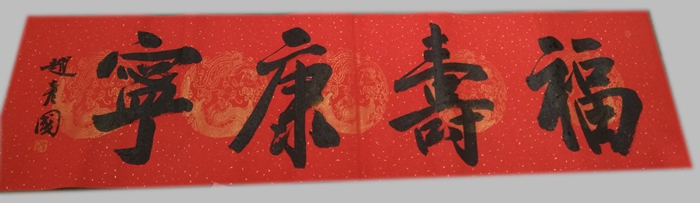 福壽康寧
趙彥國